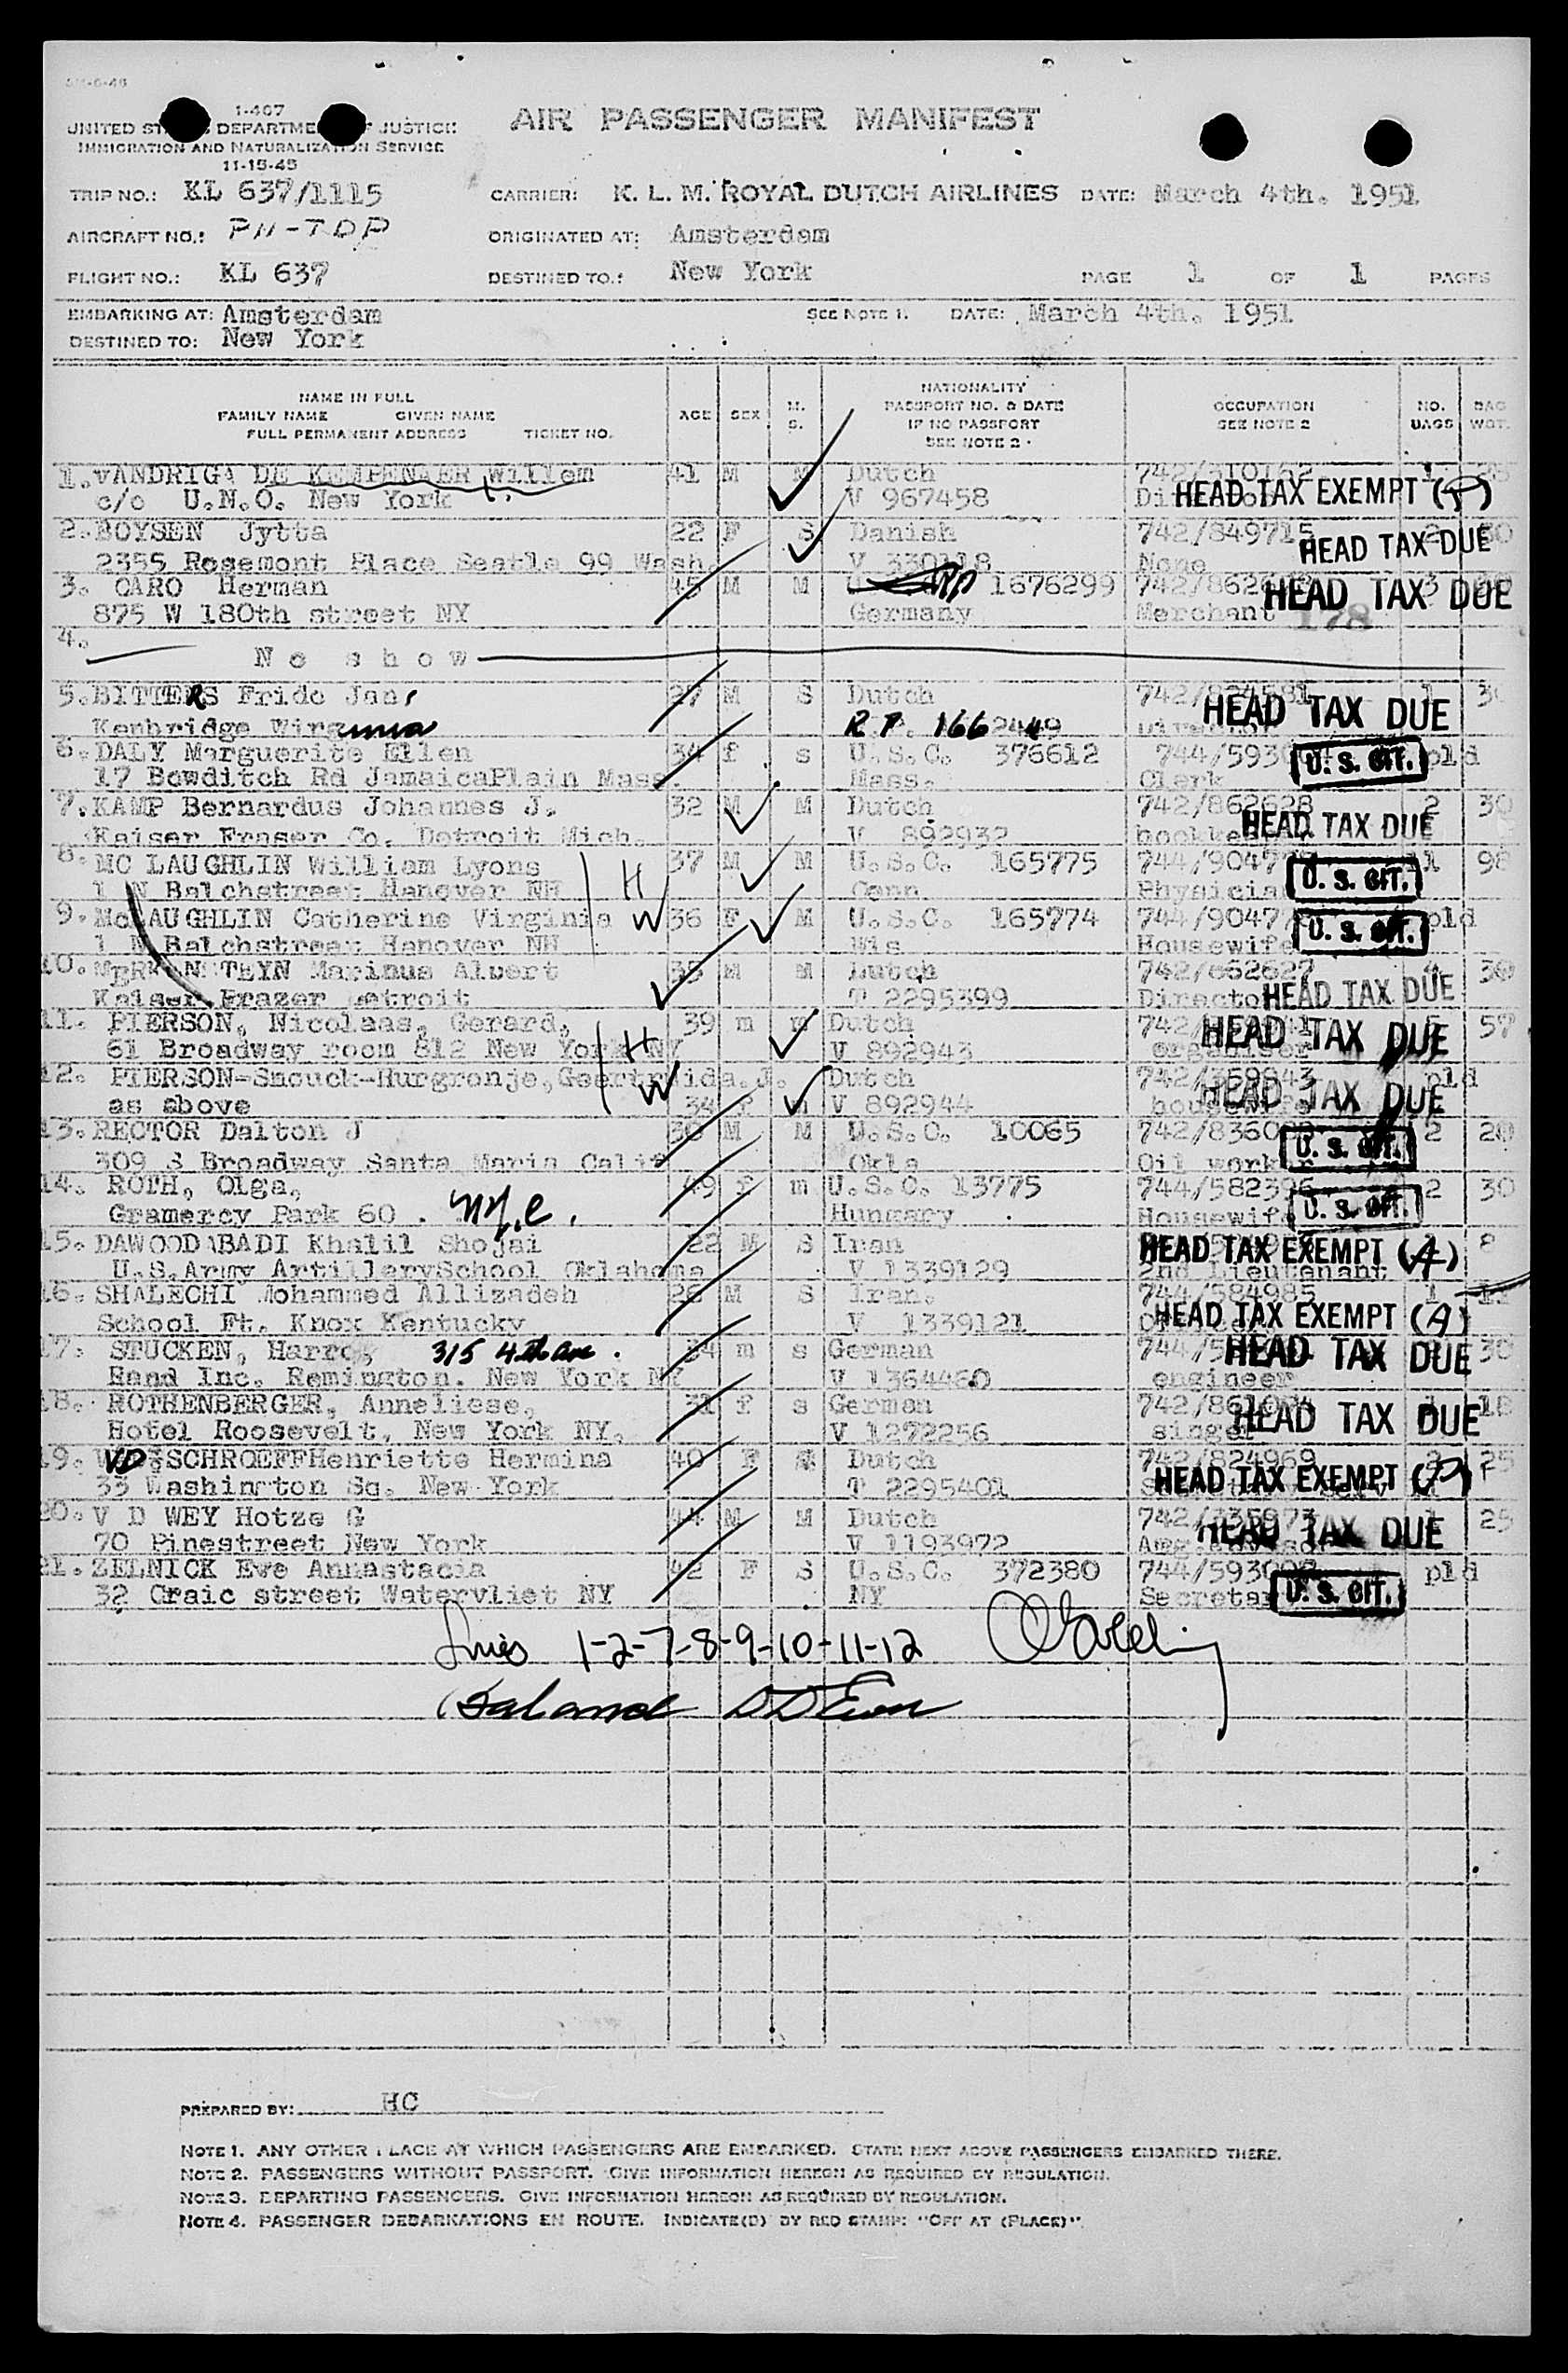 1-467
UNITED STATES DEPARTMENT OF JUSTICE
IMMIGRATION AND NATURALIZATION SERVICE
11-15-45
AIR PASSENGER MANIFEST
TRIP NO.: KL 637/1115 CARRIER: K. L. M. ROYAL DUTCH AIRLINES DATE: March 4th. 1951
AIRCRAFT NO.: PH-TDP ORIGINATED AT: Amsterdam
FLIGHT NO.: KL 637 DESTINED TO.: New York PAGE 1 OF 1 PAGES
EMBARKING AT: Amsterdam SEE NOTE 1. DATE: March 4th. 1951
DESTINED TO: New York
NAME IN FULL
FAMILY NAME GIVEN NAME
FULL PERMANENT ADDRESS TICKET NO.
AGE SEX M. S.
NATIONALITY
PASSPORT NO. & DATE
IF NO PASSPORT
SEE NOTE 2
OCCUPATION
SEE NOTE 2
NO. BAGS
BAG WGT.
1. VANDRIGA DE KEMPENAER Willem 41 M M Dutch
c/o U.N.O. New York V 967458 HEAD TAX EXEMPT
2. BOYSEN Jytta 22 F S Danish 742/849715 2 30
2355 Rosemont Place Seatle 99 Wash. V 330118 None HEAD TAX DUE
3. CARO Herman 45 M M RP 1676299 3
875 W 180th street NY Germany Merchant HEAD TAX DUE
178
4. No show
5. BITTERS Frido Jan, 27 M S Dutch 1
Kenbridge Wirginia R.P. 166 2449 HEAD TAX DUE
6. DALY Marguerite Ellen 34 f s U.S.C. 376612 pld
17 Bowditch Rd JamaicaPlain Mass. Mass. Clerk U. S. CIT.
7. KAMP Bernardus Johannes J. 32 M M Dutch 742/862628 2 30
Kaiser Fraser Co. Detroit Mich. V 892932 HEAD TAX DUE
8. MC LAUGHLIN William Lyons H 37 M M U.S.C. 165775 98
1 N Balchstreet Hanover NH Conn. U. S. CIT.
9. McLAUGHLIN Catherine Virginia W 36 F M U.S.C. 165774 pld
1 N Balchstreet Hanover NH Wis Housewife U. S. CIT.
10. Marinus Albert 35 M M Dutch 742/862627 4 30
Kaiser Frazer Detroit T 2295399 HEAD TAX DUE
11. PIERSON, Nicolaas, Gerard, 39 m m Dutch 57
61 Broadway room 812 New York NY H V 892943 HEAD TAX DUE
12. PIERSON-Snouck-Hurgronje, Geertruida.J. Dutch pld
as above W 34 f V 892944 housewife HEAD TAX DUE
13. RECTOR Dalton J 30 M M U.S.C. 10065 2 20
309 S Broadway Santa Maria Calif Okla Oil worker U. S. CIT.
14. ROTH, Olga, 49 f m U.S.C. 13775 744/582396 2 30
Gramercy Park 60. NYC. Hungary Housewife U. S. CIT.
15. DAWOODABADI Khalil Shojai 22 M S Iran 8
U.S.Army ArtillerySchool Oklahoma V 1339129 2nd Lieutenant HEAD TAX EXEMPT (A)
16. SHALECHI Mohammed Allizadeh 26 M S Iran. 744/584985 1
School Ft. Knox Kentucky V 1339121 HEAD TAX EXEMPT (A)
17. STUCKEN, Harro, 315 4th Ave. 34 m s German 30
Rand Inc. Remington. New York NY V 1364460 engineer HEAD TAX DUE
18. ROTHENBERGER, Anneliese, 31 f s German 1 18
Hotel Roosevelt, New York NY, V 1272256 singer HEAD TAX DUE
19. VD SCHROEFFHenriette Hermina 40 F Dutch 742/824969 2 25
33 Washington Sq. New York T 2295401 HEAD TAX EXEMPT
20. V D WEY Hotze G 44 M M Dutch 25
70 Pinestreet New York V 1193972 HEAD TAX DUE
21. ZELNICK Eve Annastacia 42 F S U.S.C. 372380 pld
32 Craic street Watervliet NY NY Secretary U. S. CIT.
1-2-7-8-9-10-11-12
Balance
PREPARED BY: HC
NOTE 1. ANY OTHER PLACE AT WHICH PASSENGERS ARE EMBARKED. STATE NEXT ABOVE PASSENGERS EMBARKED THERE.
NOTE 2. PASSENGERS WITHOUT PASSPORT. GIVE INFORMATION HEREON AS REQUIRED BY REGULATION.
NOTE 3. DEPARTING PASSENGERS. GIVE INFORMATION HEREON AS REQUIRED BY REGULATION.
NOTE 4. PASSENGER DEBARKATIONS EN ROUTE. INDICATE(D) BY RED STAMP: "OFF AT (PLACE)".